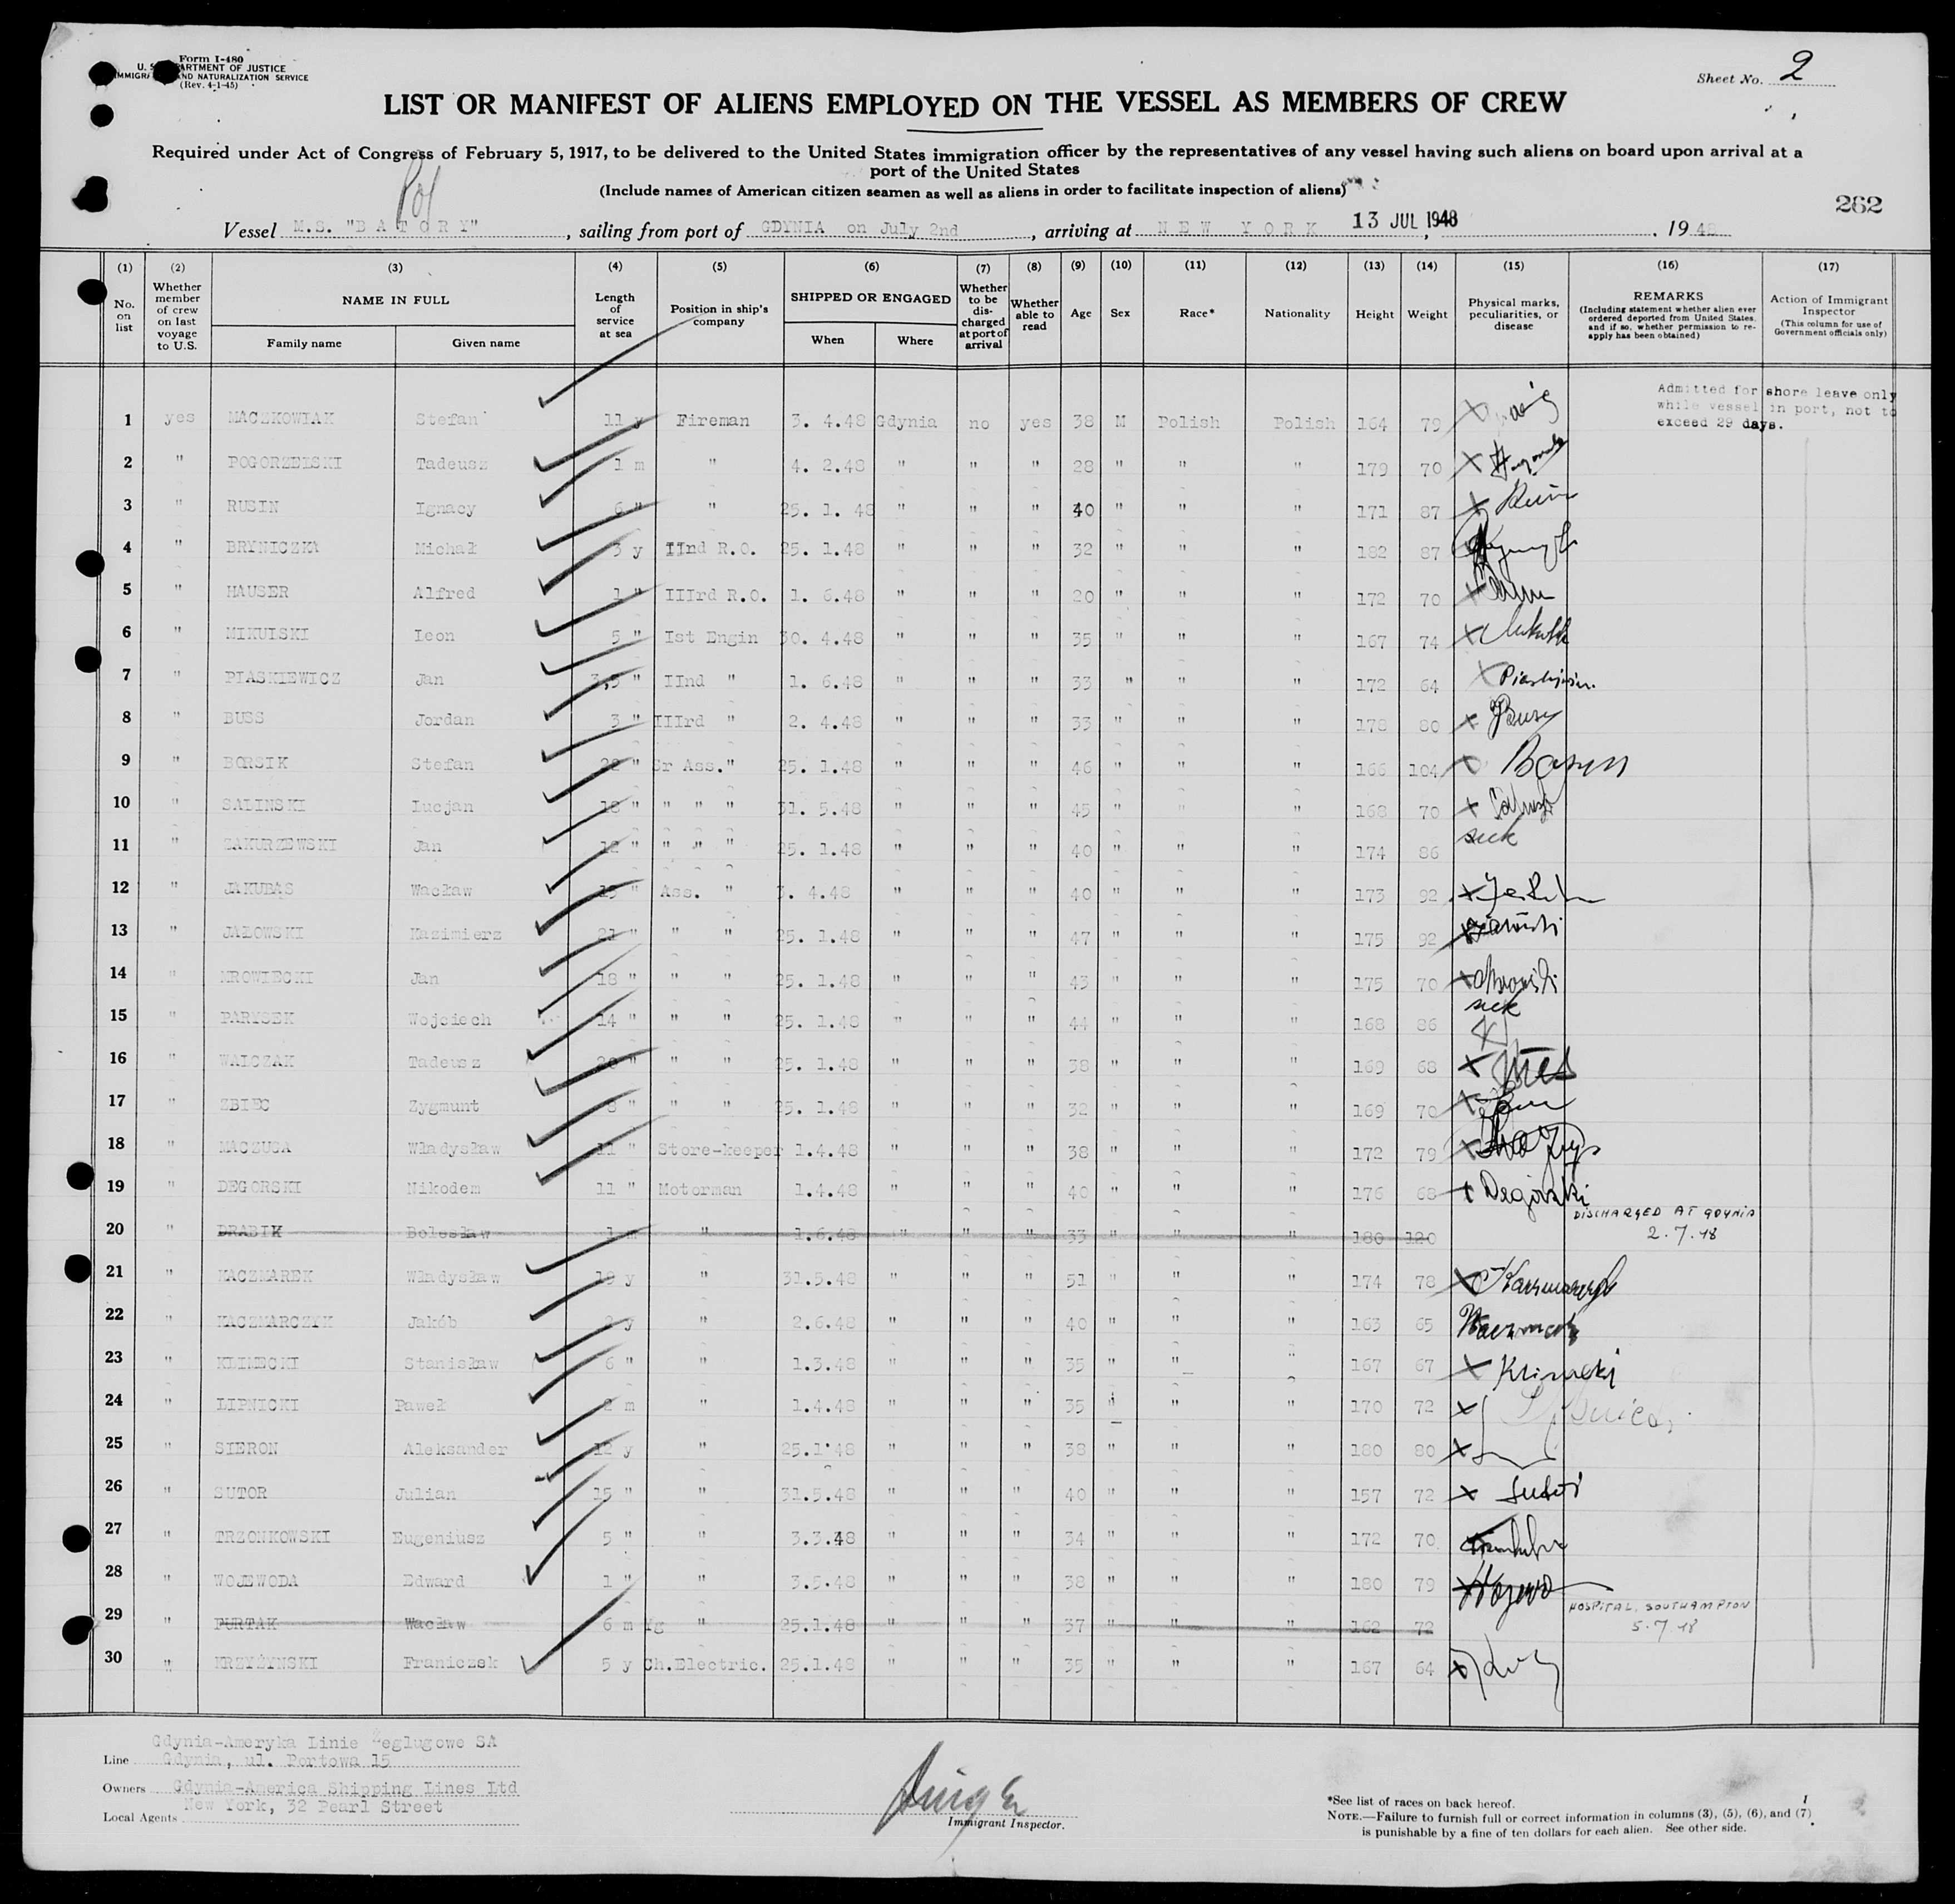 Form I-480
U. S. DEPARTMENT OF JUSTICE
IMMIGRATION AND NATURALIZATION SERVICE
(Rev. 4-1-45)
Sheet No. 2
LIST OR MANIFEST OF ALIENS EMPLOYED ON THE VESSEL AS MEMBERS OF CREW
Required under Act of Congress of February 5, 1917, to be delivered to the United States immigration officer by the representatives of any vessel having such aliens on board upon arrival at a
port of the United States
(Include names of American citizen seamen as well as aliens in order to facilitate inspection of aliens)
Pol
262
Vessel M.S. "B A T O R Y", sailing from port of GDYNIA on July 2nd, arriving at N E W Y O R K 13 JUL 1948, 1948
(1) No. on list
(2) Whether member of crew on last voyage to U.S.
(3) NAME IN FULL Family name Given name
(4) Length of service at sea
(5) Position in ship's company
(6) SHIPPED OR ENGAGED When Where
(7) Whether to be discharged at port of arrival
(8) Whether able to read
(9) Age
(10) Sex
(11) Race*
(12) Nationality
(13) Height
(14) Weight
(15) Physical marks, peculiarities, or disease
(16) REMARKS (Including statement whether alien ever ordered deported from United States, and if so, whether permission to reapply has been obtained)
(17) Action of Immigrant Inspector (This column for use of Government officials only)
Admitted for shore leave only
while vessel in port, not to
exceed 29 days.
1 yes MACZKOWIAK Stefan 11 y Fireman 3. 4.48 Gdynia no yes 38 M Polish Polish 164 79 X
2 " POGORZELSKI Tadeusz 1 m " 4. 2.48 " " " 28 " " " 179 70 X
3 " RUSIN Ignacy 6 " " 25. 1. 48 " " " 40 " " " 171 87 X Rusin
4 " BRYNICZKA Michał 3 y IInd R.O. 25. 1.48 " " " 32 " " " 182 87
5 " HAUSER Alfred 1 " IIIrd R.O. 1. 6.48 " " " 20 " " " 172 70 X
6 " MIKULSKI Leon 5 " Ist Engin 30. 4.48 " " " 35 " " " 167 74 X
7 " PIASKIEWICZ Jan 3,5 " IInd " 1. 6.48 " " " 33 " " " 172 64 X
8 " BUSS Jordan 3 " IIIrd " 2. 4.48 " " " 33 " " " 178 80 X
9 " BORSIK Stefan 22 " Sr Ass." 25. 1.48 " " " 46 " " " 166 104 X
10 " SALINSKI Lucjan 18 " " " " 31. 5.48 " " " 45 " " " 168 70 X
11 " ZAKURZEWSKI Jan 12 " " " " 25. 1.48 " " " 40 " " " 174 86 sick
12 " JAKUBAS Wacław 15 " Ass. " 3. 4.48 " " " 40 " " " 173 92 X
13 " JAŁOWSKI Kazimierz 21 " " " 25. 1.48 " " " 47 " " " 175 92 X
14 " MROWIECKI Jan 18 " " " 25. 1.48 " " " 43 " " " 175 70 X
15 " PARYSEK Wojciech 14 " " " 25. 1.48 " " " 44 " " " 168 86 sick
16 " WALCZAK Tadeusz 20 " " " 25. 1.48 " " " 38 " " " 169 68 X
17 " ZBIEC Zygmunt 8 " " " 25. 1.48 " " " 32 " " " 169 70 X
18 " MACZUGA Władysław 11 " Store-keeper 1.4.48 " " " 38 " " " 172 79 X
19 " DEGORSKI Nikodem 11 " Motorman 1.4.48 " " " 40 " " " 176 68 X Degórski
20 " DRABIK Bolesław 1 m " 1.6.48 " " " 33 " " " 180 120 DISCHARGED AT GDYNIA 2.7.48
21 " KACZMAREK Władysław 19 y " 31.5.48 " " " 51 " " " 174 78 X
22 " KACZMARCZYK Jakób 2 y " 2.6.48 " " " 40 " " " 163 65
23 " KLIMECKI Stanisław 6 " " 1.3.48 " " " 35 " " " 167 67 X Klimecki
24 " LIPNICKI Paweł 2 m " 1.4.48 " " " 35 " " " 170 72 X
25 " SIERON Aleksander 12 y " 25.1.48 " " " 38 " " " 180 80 X
26 " SUTOR Julian 15 " " 31.5.48 " " " 40 " " " 157 72 X Sutor
27 " TRZONKOWSKI Eugeniusz 5 " " 3.3.48 " " " 34 " " " 172 70
28 " WOJEWODA Edward 1 " " 3.5.48 " " " 38 " " " 180 79 X
29 " FURTAK Wacław 6 m Yg " 25.1.48 " " " 37 " " " 162 72 HOSPITAL, SOUTHAMPTON 5.7.48
30 " KRZYŻYNSKI Franiczek 5 y Ch.Electric. 25.1.48 " " " 35 " " " 167 64 X
Gdynia-Ameryka Linie Żeglugowe SA
Line Gdynia, ul. Portowa 15
Owners Gdynia-America Shipping Lines Ltd
New York, 32 Pearl Street
Local Agents
Immigrant Inspector.
*See list of races on back hereof.
NOTE.—Failure to furnish full or correct information in columns (3), (5), (6), and (7)
is punishable by a fine of ten dollars for each alien. See other side.